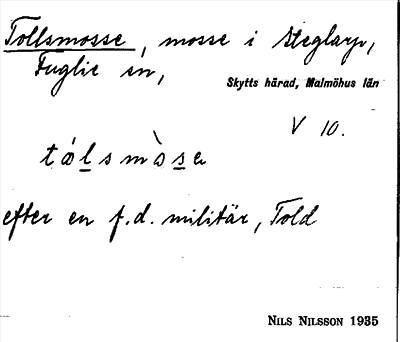 Tollsmosse, mosse i Steglarp,
Fuglie sn,
Skytts härad, Malmöhus län
V 10.
tålsmòsa
efter en f.d. militär, Told
NILS NILSSON 1935